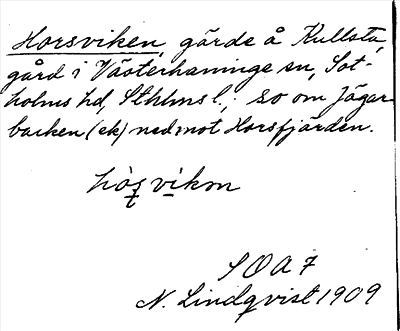 Horsviken, gärde å Kullsta,
gård i Västerhaninge sn, Sot-
holms hd, Sthlms l.; so om Jägar-
backen (ek) ned mot Horsfjärden.
S O A 7
N. Lindqvist 1909